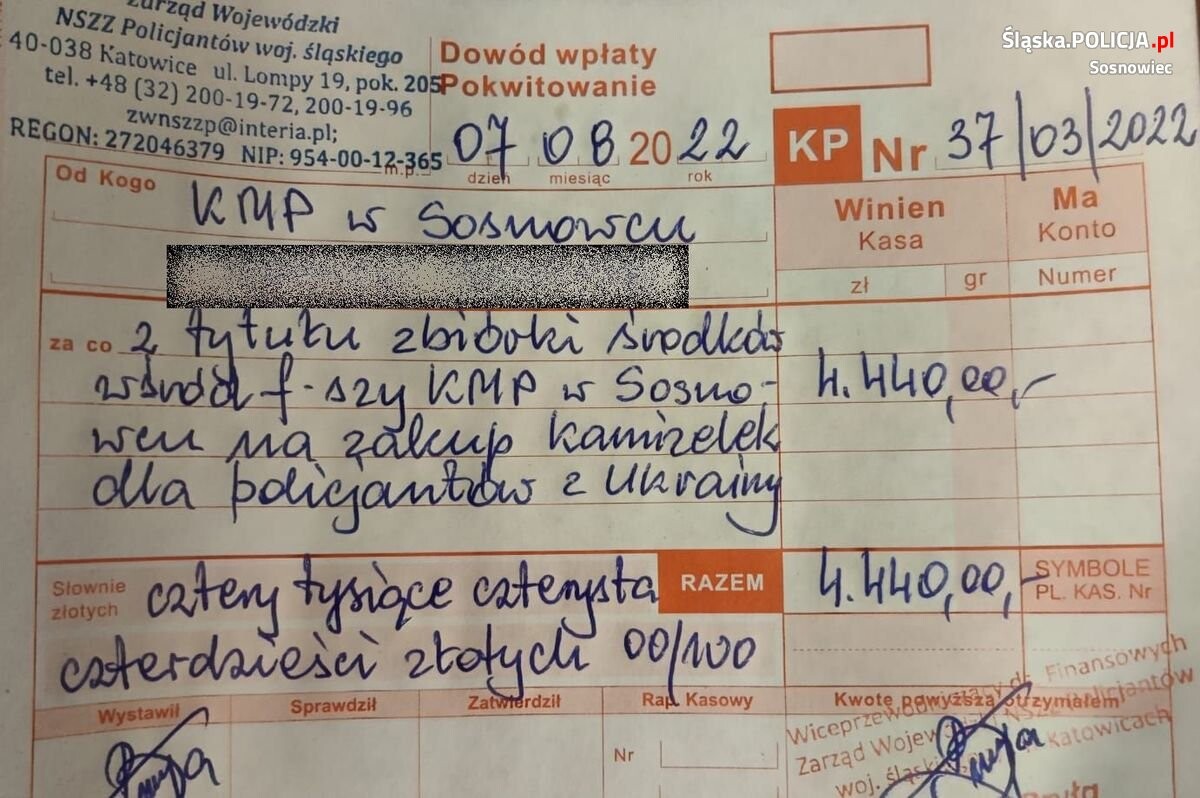 Zarząd Wojewódzki
NSZZ Policjantów woj. śląskiego
40-038 Katowice ul. Lompy 19, pok. 205
tel. +48 (32) 200-19-72, 200-19-96
zwnszzp@interia.pl;
REGON: 272046379 NIP: 954-00-12-365
m.p.
Dowód wpłaty
Pokwitowanie
07 08 2022
dzień miesiąc rok
KP Nr 37/03/2022
Śląska.POLICJA.pl
Sosnowiec
Od Kogo
KMP w Sosnowcu
Winien
Kasa
zł gr
Ma
Konto
Numer
za co z tytułu zbiórki środków
wśród f-szy KMP w Sosno-
wcu na zakup kamizelek
dla policjantów z Ukrainy
4.440,00,-
Słownie
złotych
cztery tysiące czterysta
czterdzieści złotych 00/100
RAZEM 4.440,00,-
SYMBOLE
PL. KAS. Nr
Wystawił Sprawdził Zatwierdził Rap. Kasowy Kwotę powyższą otrzymałem
Nr
Wiceprzewodniczący ds. Finansowych
Zarząd Wojew. NSZZ Policjantów
woj. śląskie Katowicach